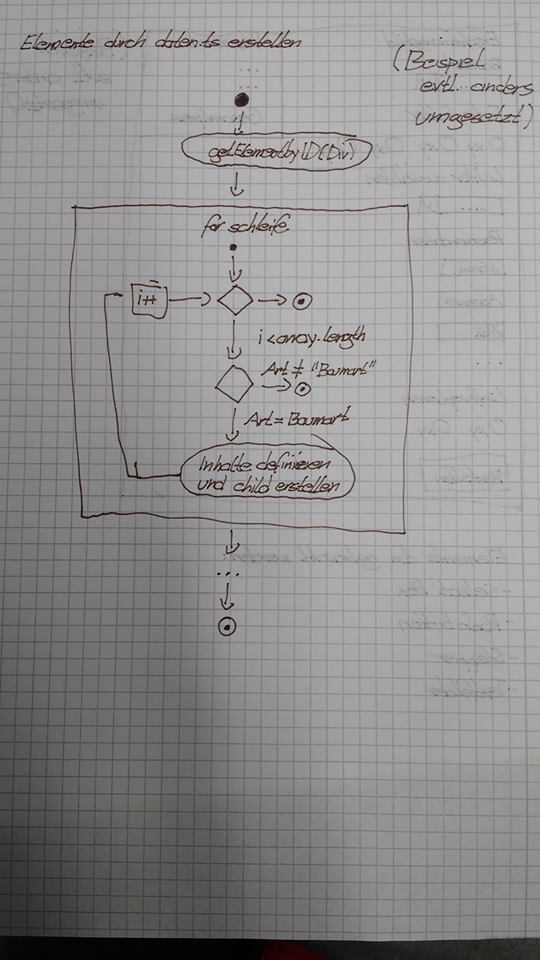 Elemente durch daten.ts erstellen
(Beispiel
evtl. anders
umgesetzt)
getElementbyID(Div)
for schleife
i++
i < array.length
Art ≠ "Baumart"
Art = Baumart
Inhalte definieren
und child erstellen
...